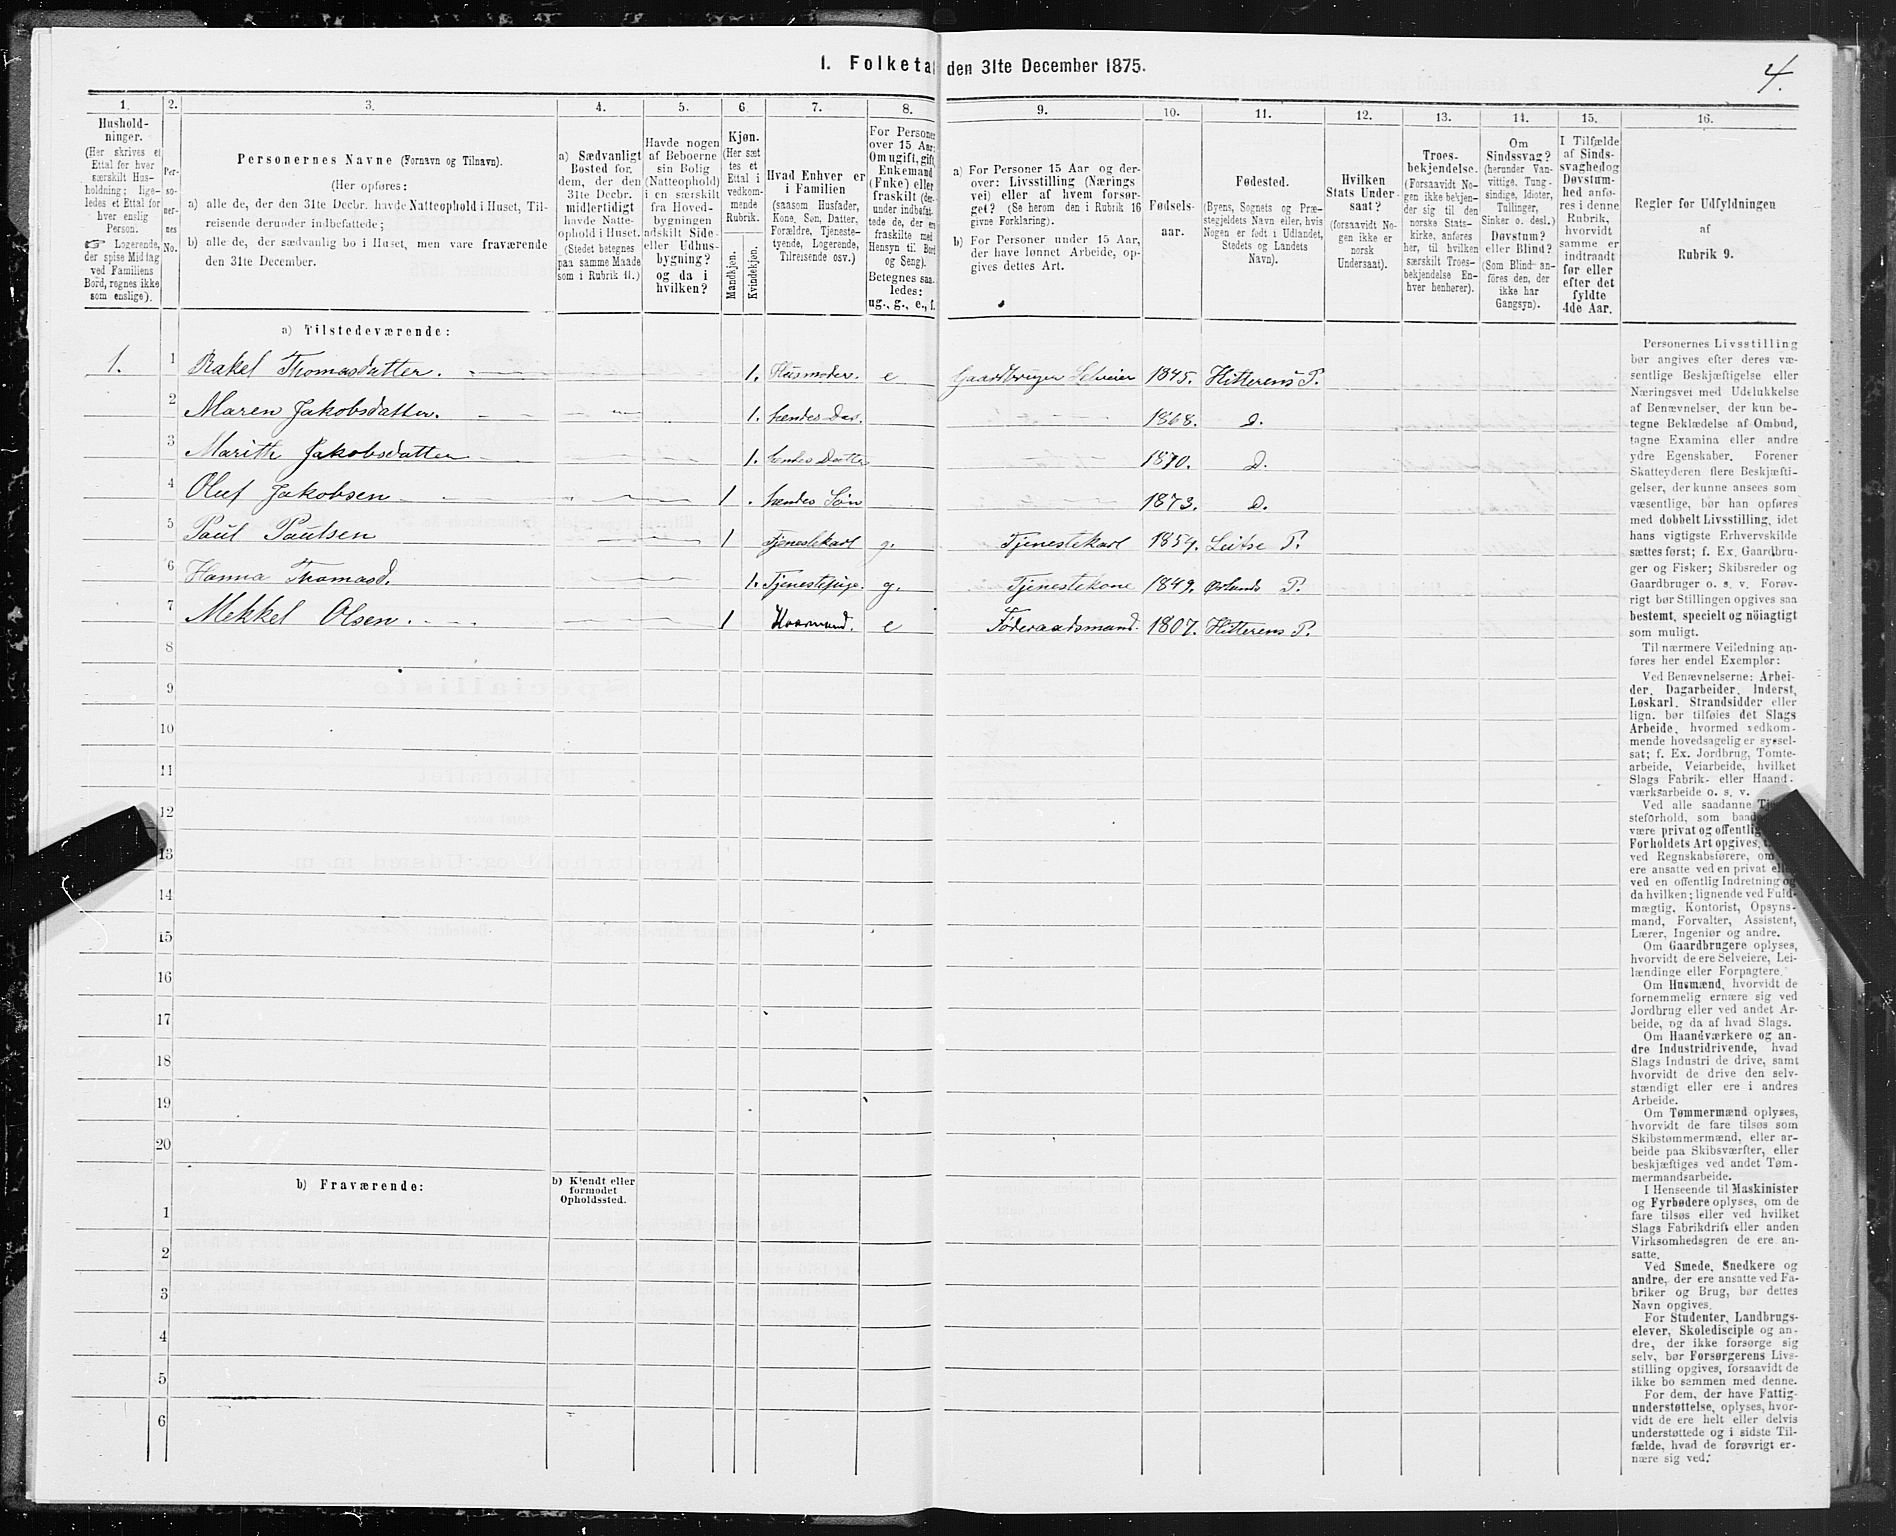 1. Folketal den 31te December 1875.
4.
1. 2. 3. 4. 5. 6 7. 8. 9. 10. 11. 12. 13. 14. 15. 16.
Hushold-
ninger.
(Her skrives et
Ettal for hver
særskilt Hus-
holdning; lige-
ledes et Ettal for
hver enslig
Person.
☞ Logerende,
der spise Middag
ved Familiens
Bord, regnes ikke
som enslige).
Per-
so-
ner-
nes
No.
Personernes Navne (Fornavn og Tilnavn).
(Her opføres:
a) alle de, der den 31te Decbr. havde Natteophold i Huset, Til-
reisende derunder indbefattede;
b) alle de, der sædvanlig bo i Huset, men vare fraværende
den 31te December.
a) Sædvanligt
Bosted for
dem, der den
31te Decbr.
midlertidigt
havde Natte-
ophold i Huset.
(Stedet betegnes
paa samme Maade
som i Rubrik 11.)
Havde nogen
af Beboerne
sin Bolig
(Natteophold)
i en særskilt
fra Hoved-
bygningen
adskilt Side-
eller Udhus-
bygning?
og da i
hvilken?
Kjøn.
(Her sæt-
tes et
Ettal i
vedkom-
mende
Rubrik.
Mandkjøn.
Kvindekjøn.
Hvad Enhver er
i Familien
(saasom Husfader,
Kone, Søn, Datter,
Forældre, Tjeneste-
tyende, Logerende,
Tilreisende osv.)
For Personer
over 15 Aar:
Om ugift, gift,
Enkemand
(Enke) eller
fraskilt (der-
under indbefat-
tede de, der ere
fraskilte med
Hensyn til Bord
og Seng).
Betegnes saa-
ledes:
ug., g., e., f.
a) For Personer 15 Aar og der-
over: Livsstilling (Nærings
vei) eller af hvem forsør-
get? (Se herom den i Rubrik 16
givne Forklaring).
b) For Personer under 15 Aar,
der have lønnet Arbeide, op-
gives dettes Art.
Fødsels-
aar.
Fødested.
(Byens, Sognets og Præ-
stegjeldets Navn eller, hvis
Nogen er født i Udlandet,
Stedets og Landets
Navn).
Hvilken
Stats Under-
saat?
(forsaavidt No-
gen ikke er
norsk
Undersaat).
Troes-
bekjendelse.
(Forsaavidt No-
gen ikke bekjen-
der sig til den
norske Stats-
kirke, anføres
her, til hvilken
særskilt Troes-
bekjendelse En-
hver henhører).
Om
Sindssvag?
(herunder Van-
vittige, Tung-
sindige, Idioter,
Tullinger,
Sinker o. desl.)
Døvstum?
eller Blind?
(Som Blind an-
føres den, der
ikke har
Gangsyn).
I Tilfælde
af Sinds-
svaghed og
Døvstum-
hed anfø-
res i denne
Rubrik,
hvorvidt
samme er
indtraadt
før eller
efter det
fyldte
4de Aar.
Regler for Udfyldningen
af
Rubrik 9.
a) Tilstedeværende:
1. 1 Rakel Thomasdatter. 1. Husmoder. e Gaardbruger Selveier 1845. Hitterens P.
2 Maren Jakobsdatter. 1. hendes Dat. 1868. D.
3 Marith Jakobsdatter 1. hendes Datter 1870. D.
4 Oluf Jakobsen 1 hendes Søn 1873. D.
5 Paul Paulsen 1 Tjenestekarl g. Tjenestekarl 1854. P.
6 Hanna Thomasd. 1. Tjenestepige. g. Tjenestekone 1849. Ørlands P.
7 Mekkel Olsen. 1 e Føderaadsmand. 1807. Hitterens P.
8
9
10
11
12
13
14
15
16
17
18
19
20
b) Fraværende:
b) Kjendt eller
formodet
Opholdssted.
1
2
3
4
5
6
Personernes Livsstilling
bør angives efter deres væ-
sentlige Beskjæftigelse eller
Næringsvei med Udelukkelse
af Benævnelser, der kun be-
tegne Beklædelse af Ombud,
tagne Examina eller andre
ydre Egenskaber. Forener
Skatteyderen flere Beskjæfti-
gelser, der kunne ansees som
væsentlige, bør han opføres
med dobbelt Livsstilling, idet
hans vigtigste Erhvervskilde
sættes først; f. Ex. Gaardbru-
ger og Fisker; Skibsreder og
Gaardbruger o. s. v. Forøv-
rigt bør Stillingen opgives saa
bestemt, specielt og nöiagtigt
som muligt.
Til nærmere Veiledning an-
føres her endel Exempler:
Ved Benævnelserne: Arbei-
der, Dagarbeider, Inderst,
Løskarl, Strandsidder eller
lign. bør tilføies det Slags
Arbeide, hvormed vedkom-
mende hovedsagelig er syssel-
sat; f. Ex. Jordbrug, Tomte-
arbeide, Veiarbeide, hvilket
Slags Fabrik- eller Haand-
værksarbeide o. s. v.
Ved alle saadanne
steforhold, som
være privat og
Forholdets Art opgives,
ved Regnskabsførere,
ere ansatte ved en privat
ved en offentlig Indretning og
da hvilken; lignende ved Fuld-
mægtig, Kontorist, Opsyns-
mand, Forvalter, Assistent,
Lærer, Ingeniør og andre.
Om Gaardbrugere oplyses,
hvorvidt de ere Selveiere, Lei-
lændinge eller Forpagtere.
Om Husmænd, hvorvidt de
fornemmelig ernære sig ved
Jordbrug eller ved andet Ar-
beide, og da af hvad Slags.
Om Haandværkere og an-
dre Industridrivende, hvad
Slags Industri de drive, samt
hvorvidt de drive den selv-
stændigt eller ere i andres
Arbeide.
Om Tømmermænd oplyses,
hvorvidt de fare tilsøs som
Skibstømmermænd, eller ar-
beide paa Skibsværfter, eller
beskjæftiges ved andet Tøm-
mermandsarbeide.
I Henseende til Maskinister
og Fyrbødere oplyses, om de
fare tilsøs eller ved hvilket
Slags Fabrikdrift eller anden
Virksomhedsgren de ere an-
satte.
Ved Smede, Snedkere og
andre, der ere ansatte ved Fa-
briker og Brug, bør dettes
Navn opgives.
For Studenter, Landbrugs-
elever, Skoledisciple og an-
dre, der ikke forsørge sig
selv, bør Forsørgerens Livs-
stilling opgives, forsaavidt de
ikke bo sammen med denne.
For dem, der have Fattig-
understøttelse, oplyses, hvor-
vidt de ere helt eller delvis
understøttede og i sidste Til-
fælde, hvad de forøvrigt er-
nære sig ved.